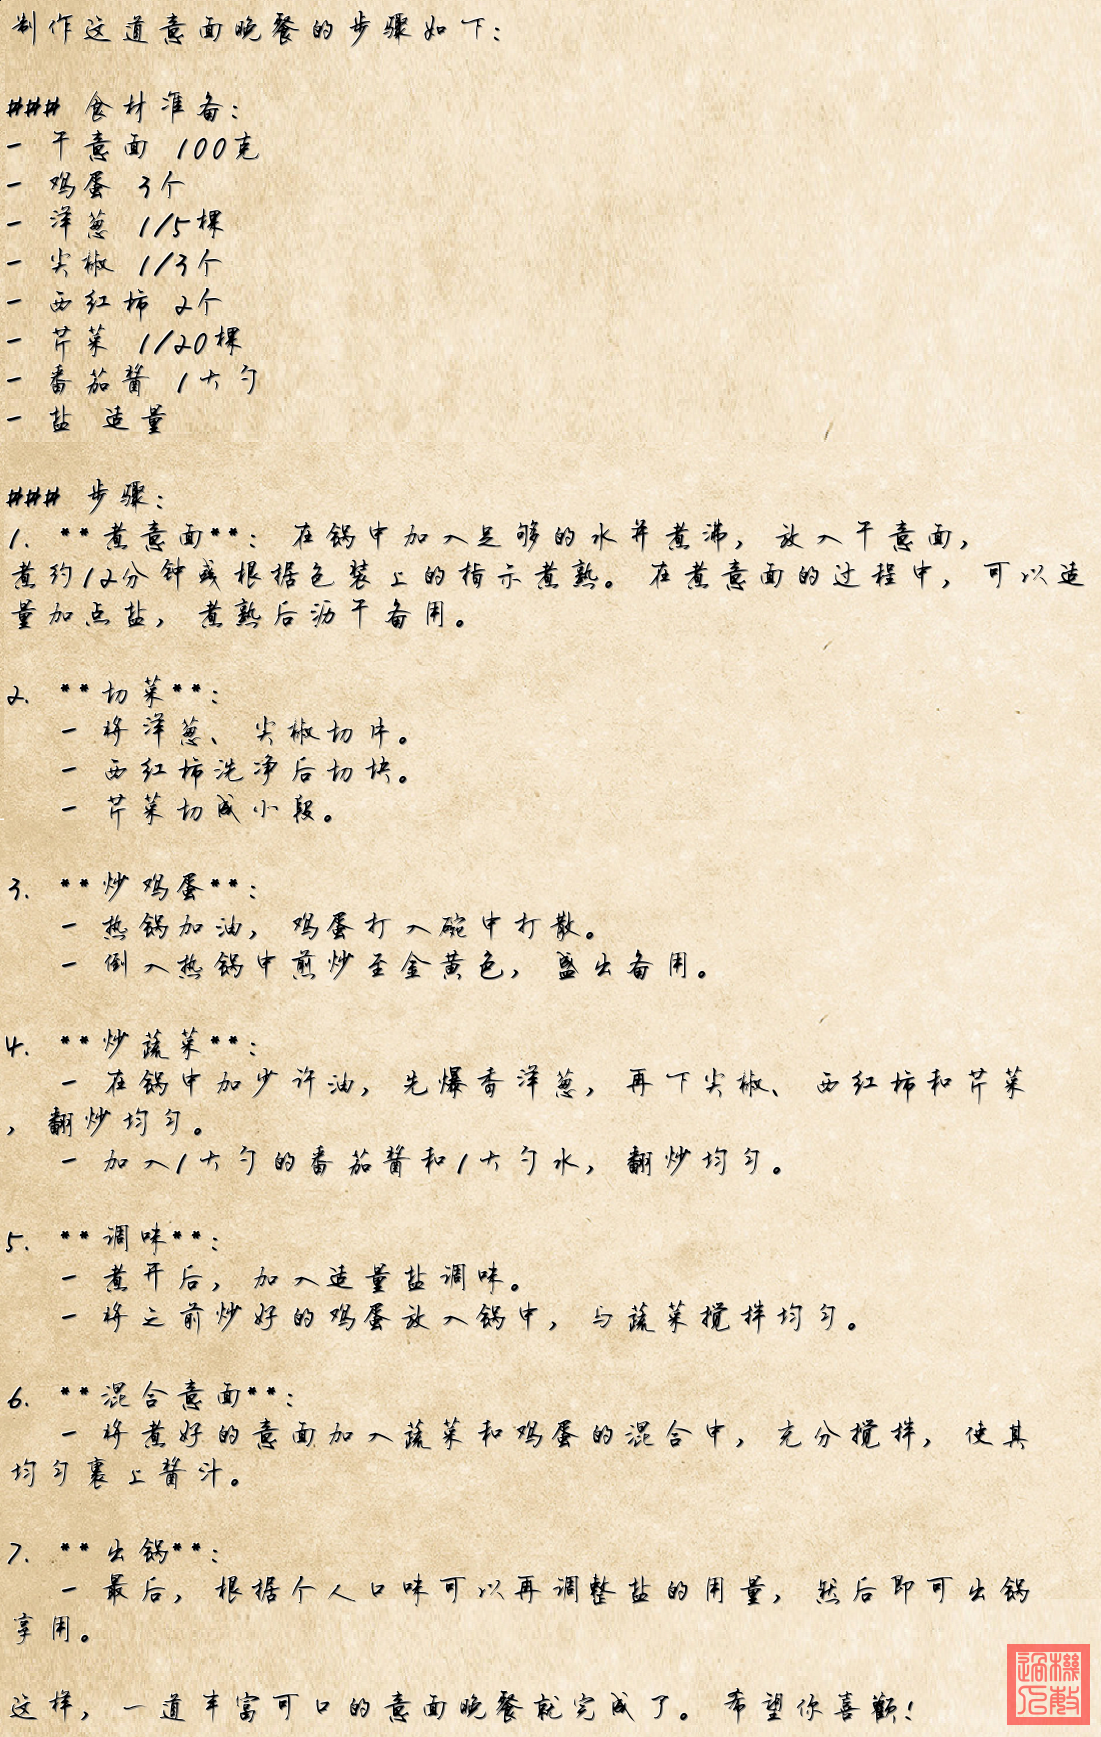 制作这道意面晚餐的步骤如下：
### 食材准备：
- 干意面 100克
- 鸡蛋 3个
- 洋葱 1/5棵
- 尖椒 1/3个
- 西红柿 2个
- 芹菜 1/20棵
- 番茄酱 1大勺
- 盐 适量
### 步骤：
1. **煮意面**： 在锅中加入足够的水并煮沸，放入干意面，
煮约12分钟或根据包装上的指示煮熟。在煮意面的过程中，可以适
量加点盐，煮熟后沥干备用。
2. **切菜**：
- 将洋葱、尖椒切片。
- 西红柿洗净后切块。
- 芹菜切成小段。
3. **炒鸡蛋**：
- 热锅加油，鸡蛋打入碗中打散。
- 倒入热锅中煎炒至金黄色，盛出备用。
4. **炒蔬菜**：
- 在锅中加少许油，先爆香洋葱，再下尖椒、西红柿和芹菜
，翻炒均匀。
- 加入1大勺的番茄酱和1大勺水，翻炒均匀。
5. **调味**：
- 煮开后，加入适量盐调味。
- 将之前炒好的鸡蛋放入锅中，与蔬菜搅拌均匀。
6. **混合意面**：
- 将煮好的意面加入蔬菜和鸡蛋的混合中，充分搅拌，使其
均匀裹上酱汁。
7. **出锅**：
- 最后，根据个人口味可以再调整盐的用量，然后即可出锅
享用。
这样，一道丰富可口的意面晚餐就完成了。希望你喜歡！